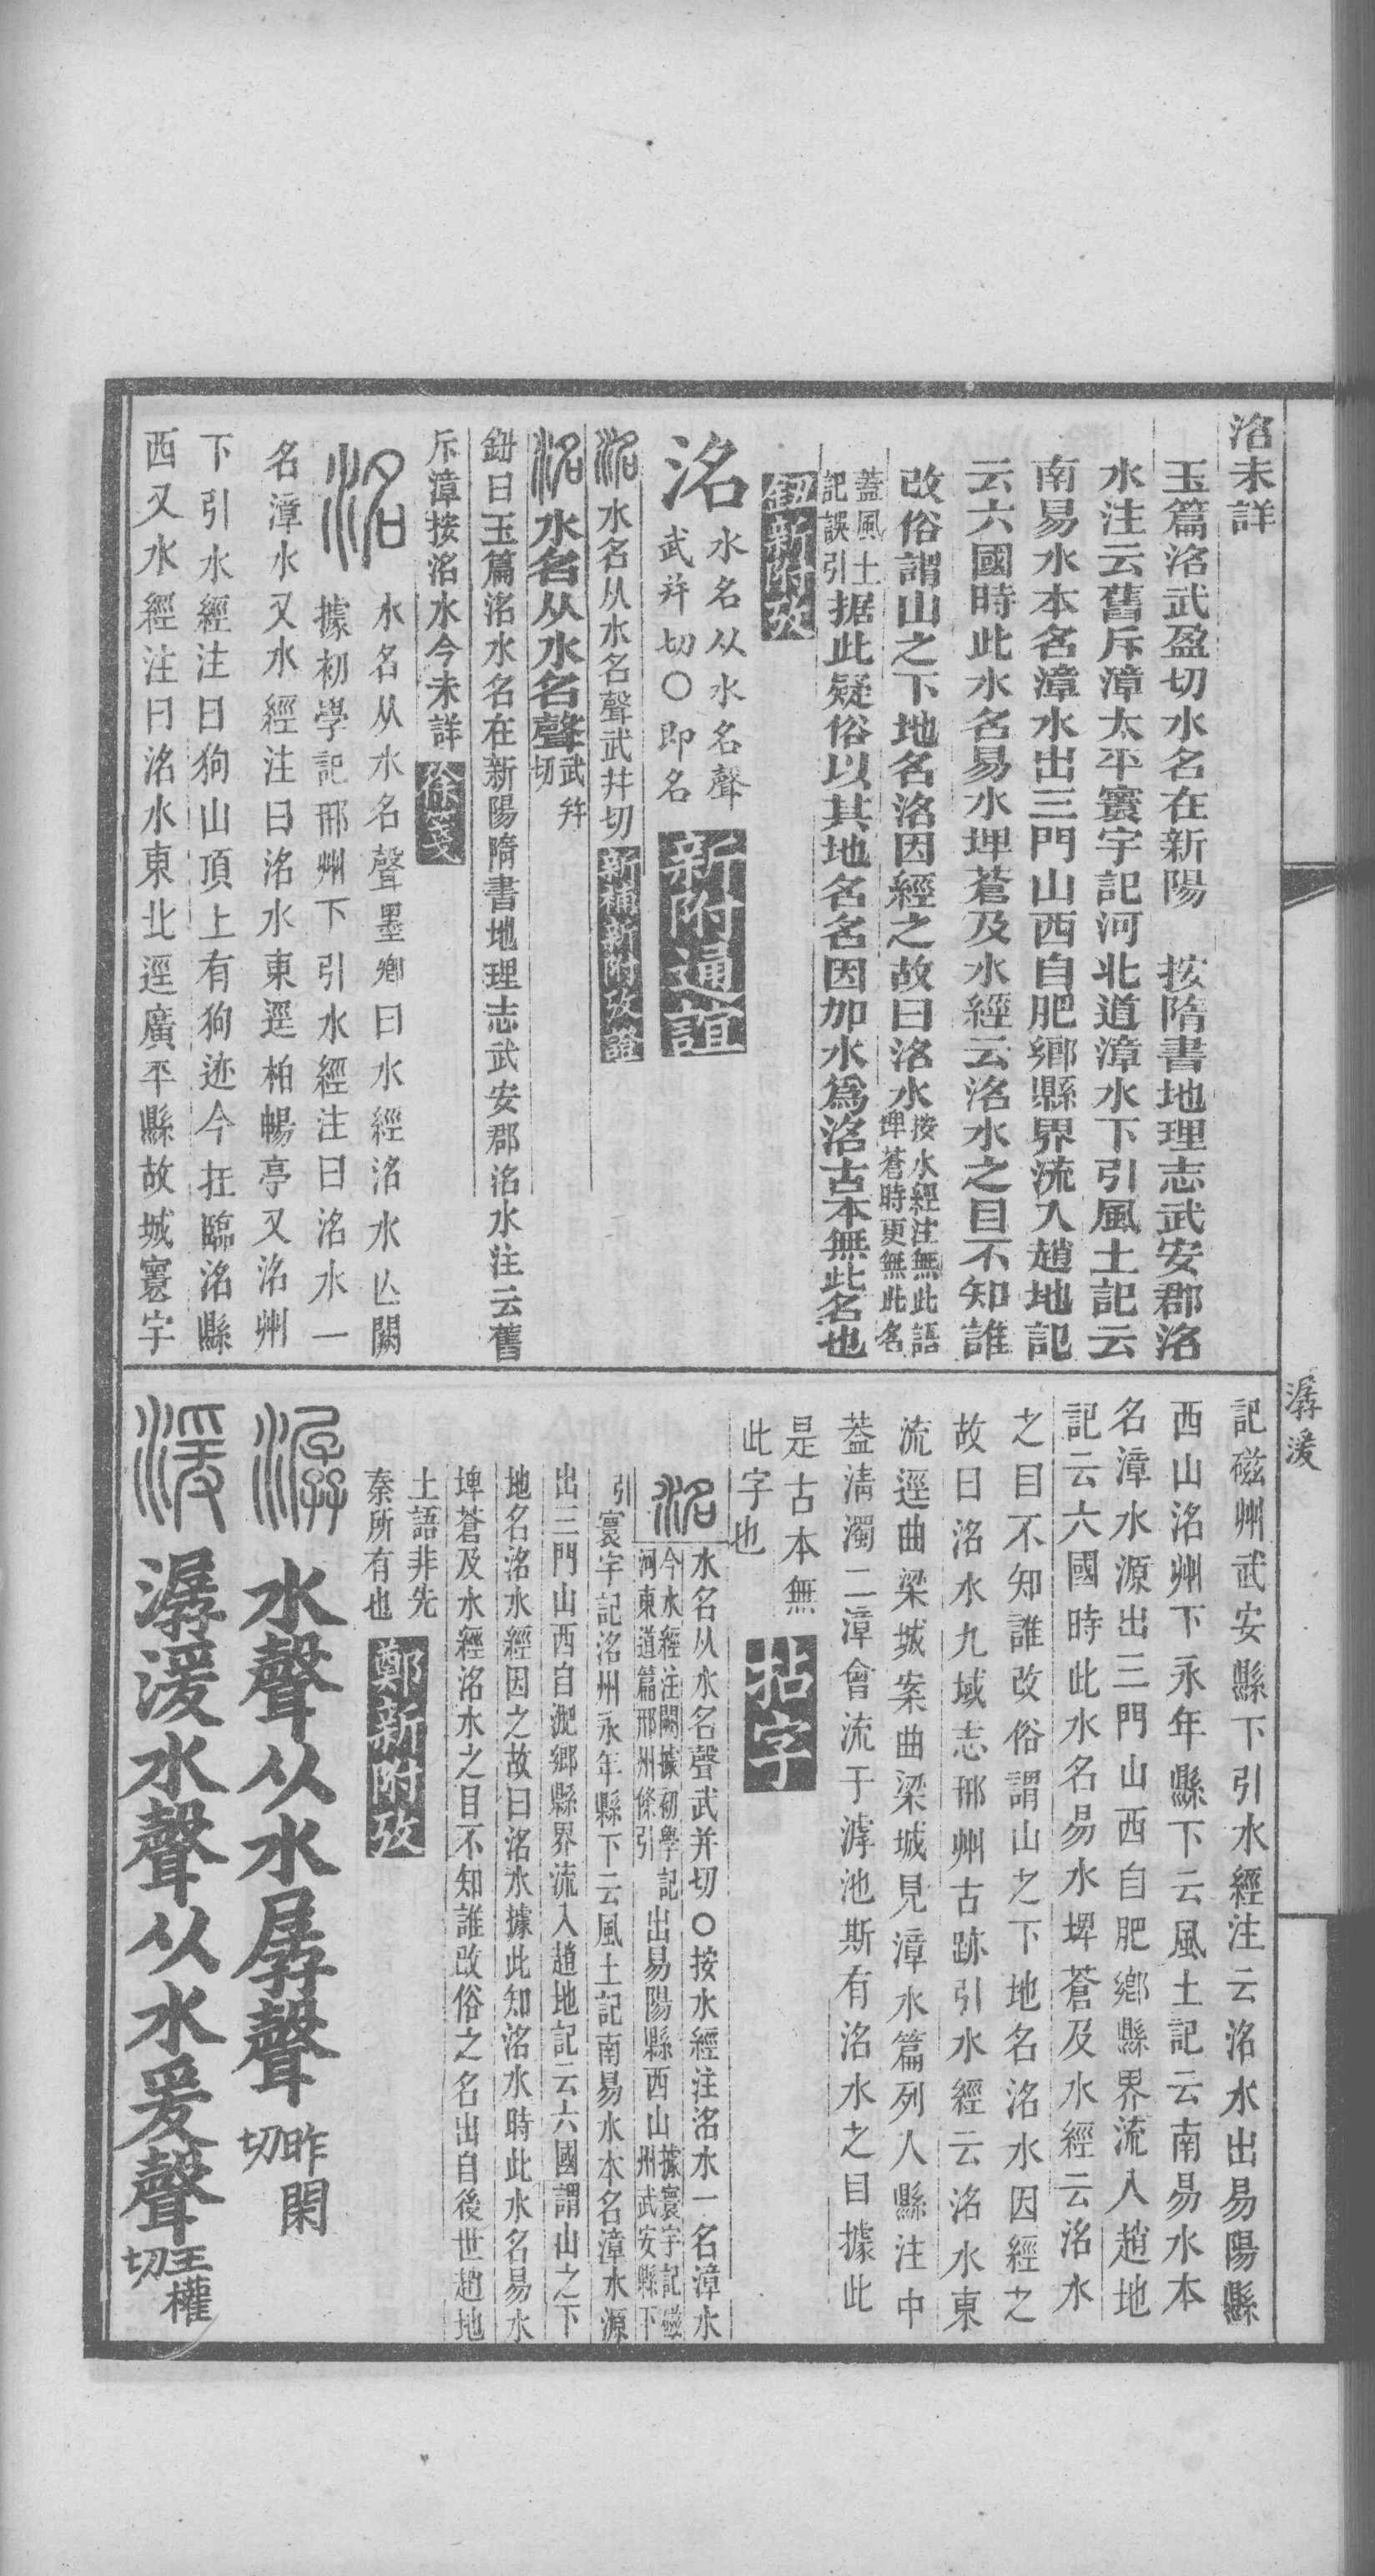 洺未詳
玉篇洺武盈切水名在新陽　按隋書地理志武安郡洺
水注云舊斥漳太平寰宇記河北道漳水下引風土記云
南易水本名漳水出三門山西自肥鄉縣界流入趙地記
云六國時此水名易水埤蒼及水經云洺水之目不知誰
改俗謂山之下地名洺因經之故曰洺水按水經注無此語
埤蒼時更無此名
蓋風土
記誤引据此疑俗以其地名名因加水爲洺古本無此名也
鈕新附攷
洺水名从水名聲
武并切〇即名
新附通誼
洺水名从水名聲武并切新補新附攷證
洺水名从水名聲武并
切
鈕曰玉篇洺水名在新陽隋書地理志武安郡洺水注云舊
斥漳按洺水今未詳徐箋
洺水名从水名聲墨鄉曰水經洺水亾闕
據初學記邢州下引水經注曰洺水一
名漳水又水經注曰洺水東逕柏暢亭又洺州
下引水經注曰狗山頂上有狗迹今在臨洺縣
西又水經注曰洺水東北逕廣平縣故城寰宇
潺湲
記磁州武安縣下引水經注云洺水出易陽縣
西山洺州下永年縣下云風土記云南易水本
名漳水源出三門山西自肥鄉縣界流入趙地
記云六國時此水名易水埤蒼及水經云洺水
之目不知誰改俗謂山之下地名洺水因經之
故曰洺水九域志邢州古跡引水經云洺水東
流逕曲梁城案曲梁城見漳水篇列人縣注中
葢淸濁二漳會流于滹池斯有洺水之目據此
是古本無
此字也
拈字
洺水名从水名聲武并切〇按水經注洺水一名漳水
今水經注闕據初學記
河東道篇邢州條引出易陽縣西山據寰宇記磁
州武安縣下
引寰宇記洺州永年縣下云風土記南易水本名漳水源
出三門山西自肥鄉縣界流入趙地記云六國謂山之下
地名洺水經因之故曰洺水據此知洺水時此水名易水
埤蒼及水經洺水之目不知誰改俗之名出自後世趙地
土語非先
秦所有也
鄭新附攷
潺水聲从水孱聲昨閑
切
湲潺湲水聲从水爰聲王權
切